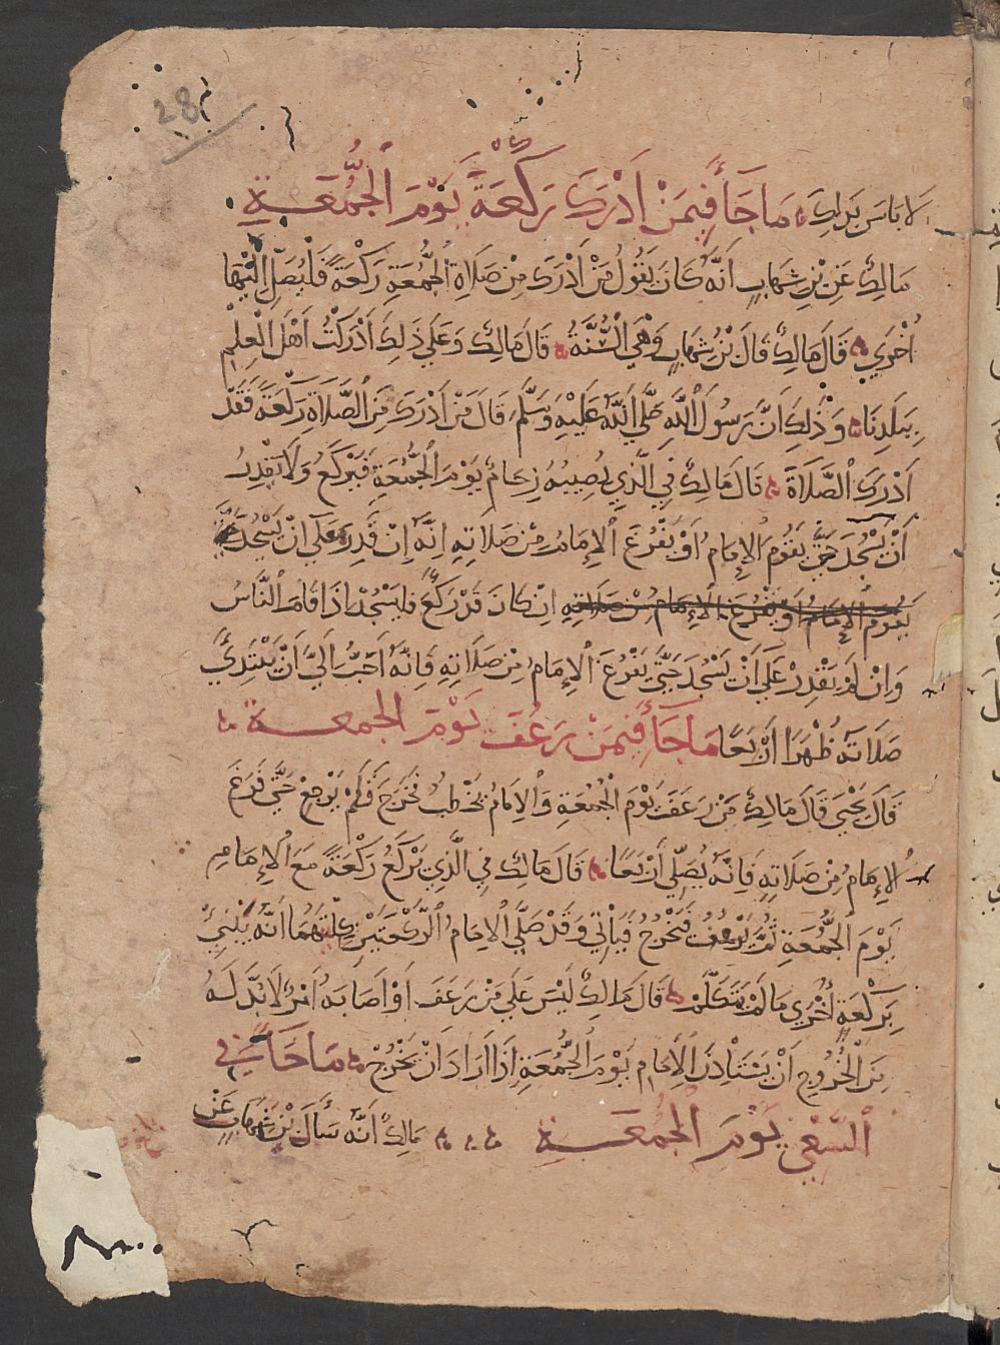 28
لَا بَاسَ بِذَلِكَ مَا جَاءَ فِيمَنْ اَدْرَكَ رَكْعَةً يَوْمَ الْجُمُعَةِ
مَالِكٌ عَنِ بْنِ شِهَابٍ اَنَّهُ كَانَ يَقُولُ مَنْ اَدْرَكَ مِنْ صَلَاةِ الْجُمُعَةِ رَكْعَةً فَلْيُصَلِّ اِلَيْهَا
اُخْرَي قَالَ مَالِكٌ قَالَ بْنُ شِهَابٍ وَهْيَ السُّنَّةُ قَالَ مَالِكٌ وَعَلَي ذَلِكَ اَدْرَكْتُ اَهْلَ الْعِلْمِ
بِبَلَدِنَا وَذَلِكَ اَنَّ رَسُولَ اللَّهِ صَلَّي اللَّهُ عَلَيْهِ وَسَلَّمَ قَالَ مَنْ اَدْرَكَ مِنَ الصَّلَاةِ رَكْعَةً فَقَدْ
اَدْرَكَ الصَّلَاةَ قَالَ مَالِكٌ فِي الَّذِي يُصِيبُهُ زِحَامٌ يَوْمَ الْجُمُعَةِ فَيَرْكَعُ وَلَا يَقْدِرُ
اَنْ يَسْجُدَ حَتَّي يَقُومَ الْاِمَامُ اَوْ يَفْرُغَ الْاِمَامُ مِنْ صَلَاتِهِ اِنَّهُ اِنْ قَدِرَ عَلَي اَنْ يَسْجُدَ
يَقُومُ الْاِمَامُ اَوْ يَفْرُغَ الْاِمَامُ مِنْ صَلَاتِهِ اِنْ كَانَ قَدْ رَكَعَ فَلْيَسْجُدْ اِذَا قَامَ النَّاسُ
وَاِنْ لَمْ يَقْدِرْ عَلَي اَنْ يَسْجُدَ حَتَّي يَفْرُغَ الْاِمَامُ مِنْ صَلَاتِهِ فَاِنَّهُ اَحَبُّ اِلَيَّ اَنْ يَبْتَدِيَ
صَلَاتَهُ ظُهْرًا اَرْبَعًا مَا جَاءَ فِيمَنْ رَعَفَ يَوْمَ الجمعة
قَالَ يَحْيَي قَالَ مَالِكٌ مَنْ رَعَفَ يَوْمَ الْجُمُعَةِ وَالْاِمَامُ يَخْطُبُ فَخَرَجَ فَلَمْ يَرْجِعْ حَتَّي فَرَغَ
الْاِمَامُ مِنْ صَلَاتِهِ فَاِنَّهُ يُصَلِّي اَرْبَعًا قَالَ مَالِكٌ فِي الَّذِي يَرْكَعُ رَكْعَةً مَعَ الْاِمَامِ
يَوْمَ الْجُمُعَةِ ثُمَّ يَرْعُفُ فَيَخْرُجُ فَيَاتِي وَقَدْ صَلَّي الْاِمَامُ الرَّكْعَتَيْنِ كِلْتَيْهِمَا اَنَّهُ يَبْنِي
بِرَكْعَةٍ اُخْرَي مَا لَمْ يَتَكَلَّمْ قَالَ مَالِكٌ لَيْسَ عَلَي مَنْ رَعَفَ اَوْ اَصَابَهُ اَمْرٌ لَا بُدَّ لَهُ
مِنَ الْخُرُوجِ اَنْ يَسْتَاذِنَ الْاِمَامَ يَوْمَ الْجُمُعَةِ اِذَا اَرَادَ اَنْ يَخْرُجَ مَا جَاءَ فِي
السَّعْيِ يَوْمَ الْجُمُعَةِ مَالِكٌ اَنَّهُ سَاَلَ بْنَ شِهَابٍ عَنْ